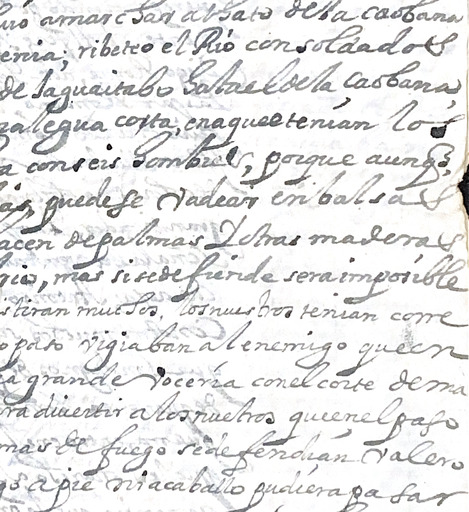 amarchar a hato de la caobana
enia, ribeteo el Rio con soldados
de la guaitabo hata el de la caobana,
legua corta, en aquee tenian los
a con seis hombres, porque aunq̃
puedese vadear en balsas
acen de palmas y otras maderas
rio, mas si se defiende sera imposible
stiran muchos. los nuestros tenian corre
o paso vigiaban al enemigo que en
a grande voceria con el corte de ma
ra divertir a los nuestros que en el paso
mas de fuego se defendian valero
a pie ni a caballo pudiera pasar